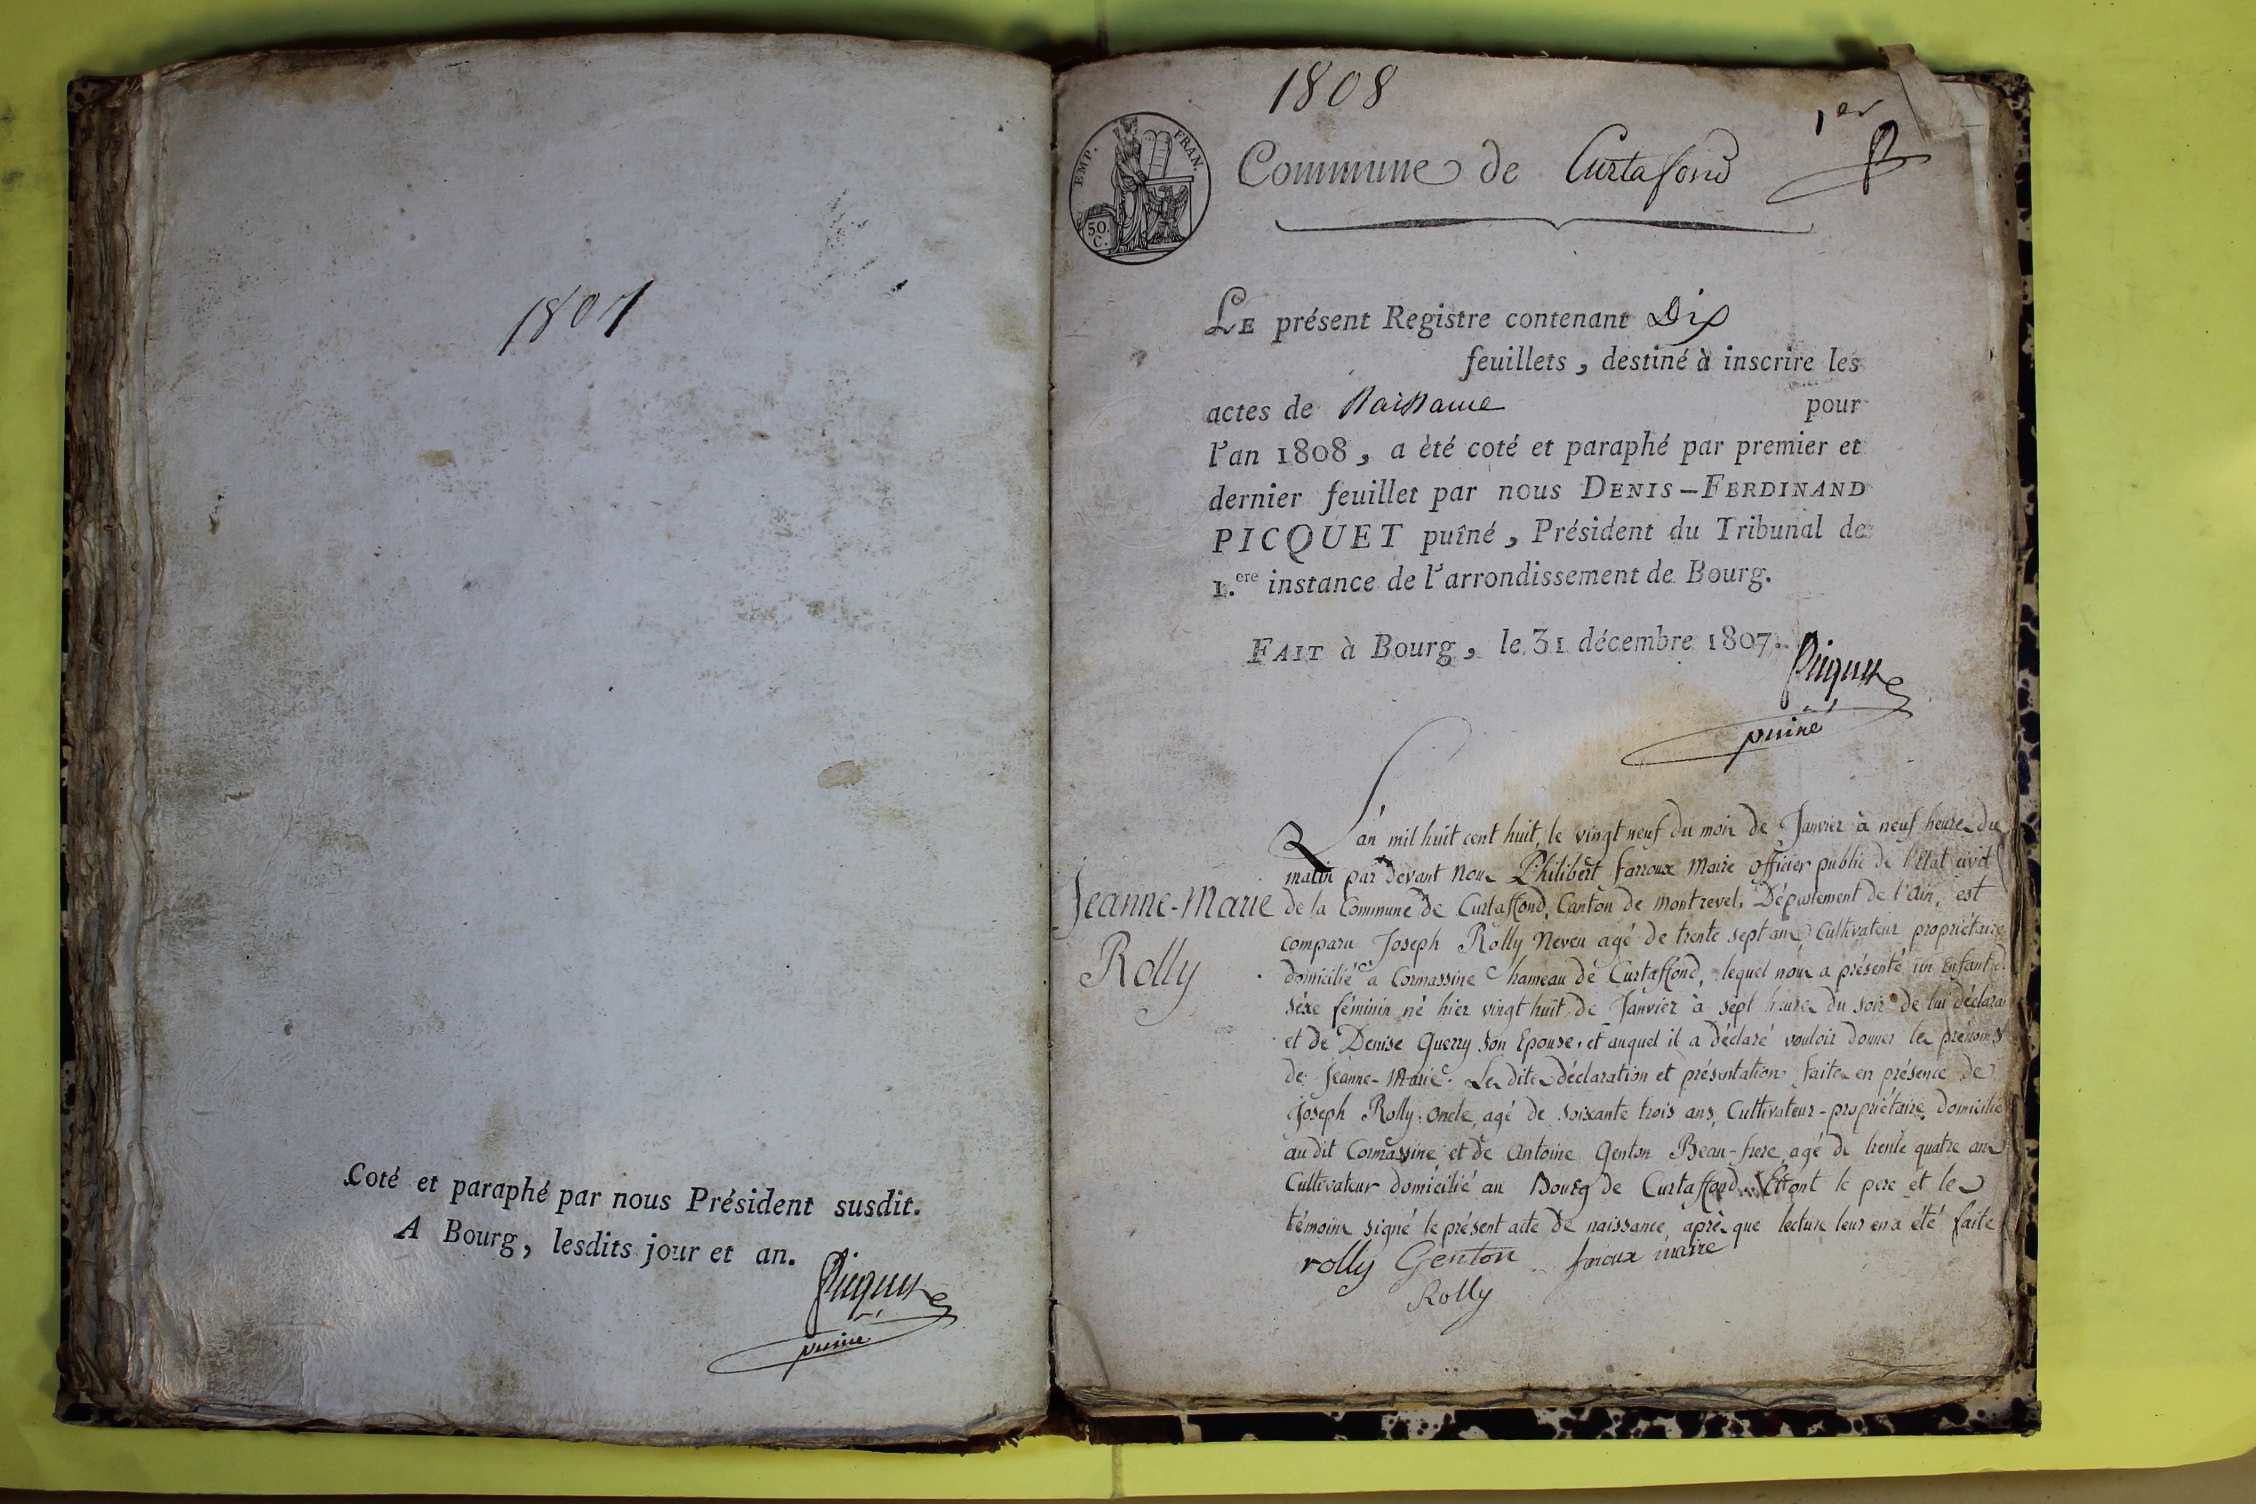 1807
Coté et paraphé par nous Président susdit.
A Bourg, lesdits jour et an.
Picquet
puiné
1808
1er
EMP. FRAN.
50.
C.
Commune de Curtafond
LE présent Registre contenant Dix
feuillets, destiné à inscrire les
actes de Naissance pour
l'an 1808, a èté coté et paraphé par premier et
dernier feuillet par nous DENIS-FERDINAND
PICQUET puîné, Président du Tribunal de
1.ere instance de l'arrondissement de Bourg.
FAIT à Bourg, le 31 décembre 1807.
Picquet
puiné
Jeanne-Marie
Rolly
L'an mil huit cent huit, le vingt neuf du mois de Janvier à neuf heures du
matin par devant Nous Philibert farroux Maire officier public de l'Etat civil
de la Commune de Curtaffond, Canton de Montrevel, Département de l'ain, est
comparu Joseph Rolly Neveu agé de trente sept ans Cultivateur propriétaire
domicilié à Cormassine hameau de Curtaffond, lequel nous a présenté un Enfant d
séxe féminin né hier vingt huit de Janvier à sept heures du soir de lui déclara
et de Denise Guerry son Epouse, et auquel il a déclaré vouloir donner les prénoms
de Jeanne-Marie. Les dites déclaration et présentation faites en présence de
Joseph Rolly oncle, agé de soixante trois ans, Cultivateur-propriétaire domicilié
au dit Cormassine et de Antoine Genton Beau-frere, agé de trente quatre ans
Cultivateur domicilié au Bourg de Curtaffond. Et ont le pere et les
témoins signé le présent acte de naissance, après que lecture leur en a été faite
rolly Genton faroux maire
Rolly